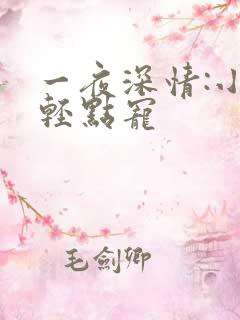 一夜深情:小
輕點寵
毛劍卿